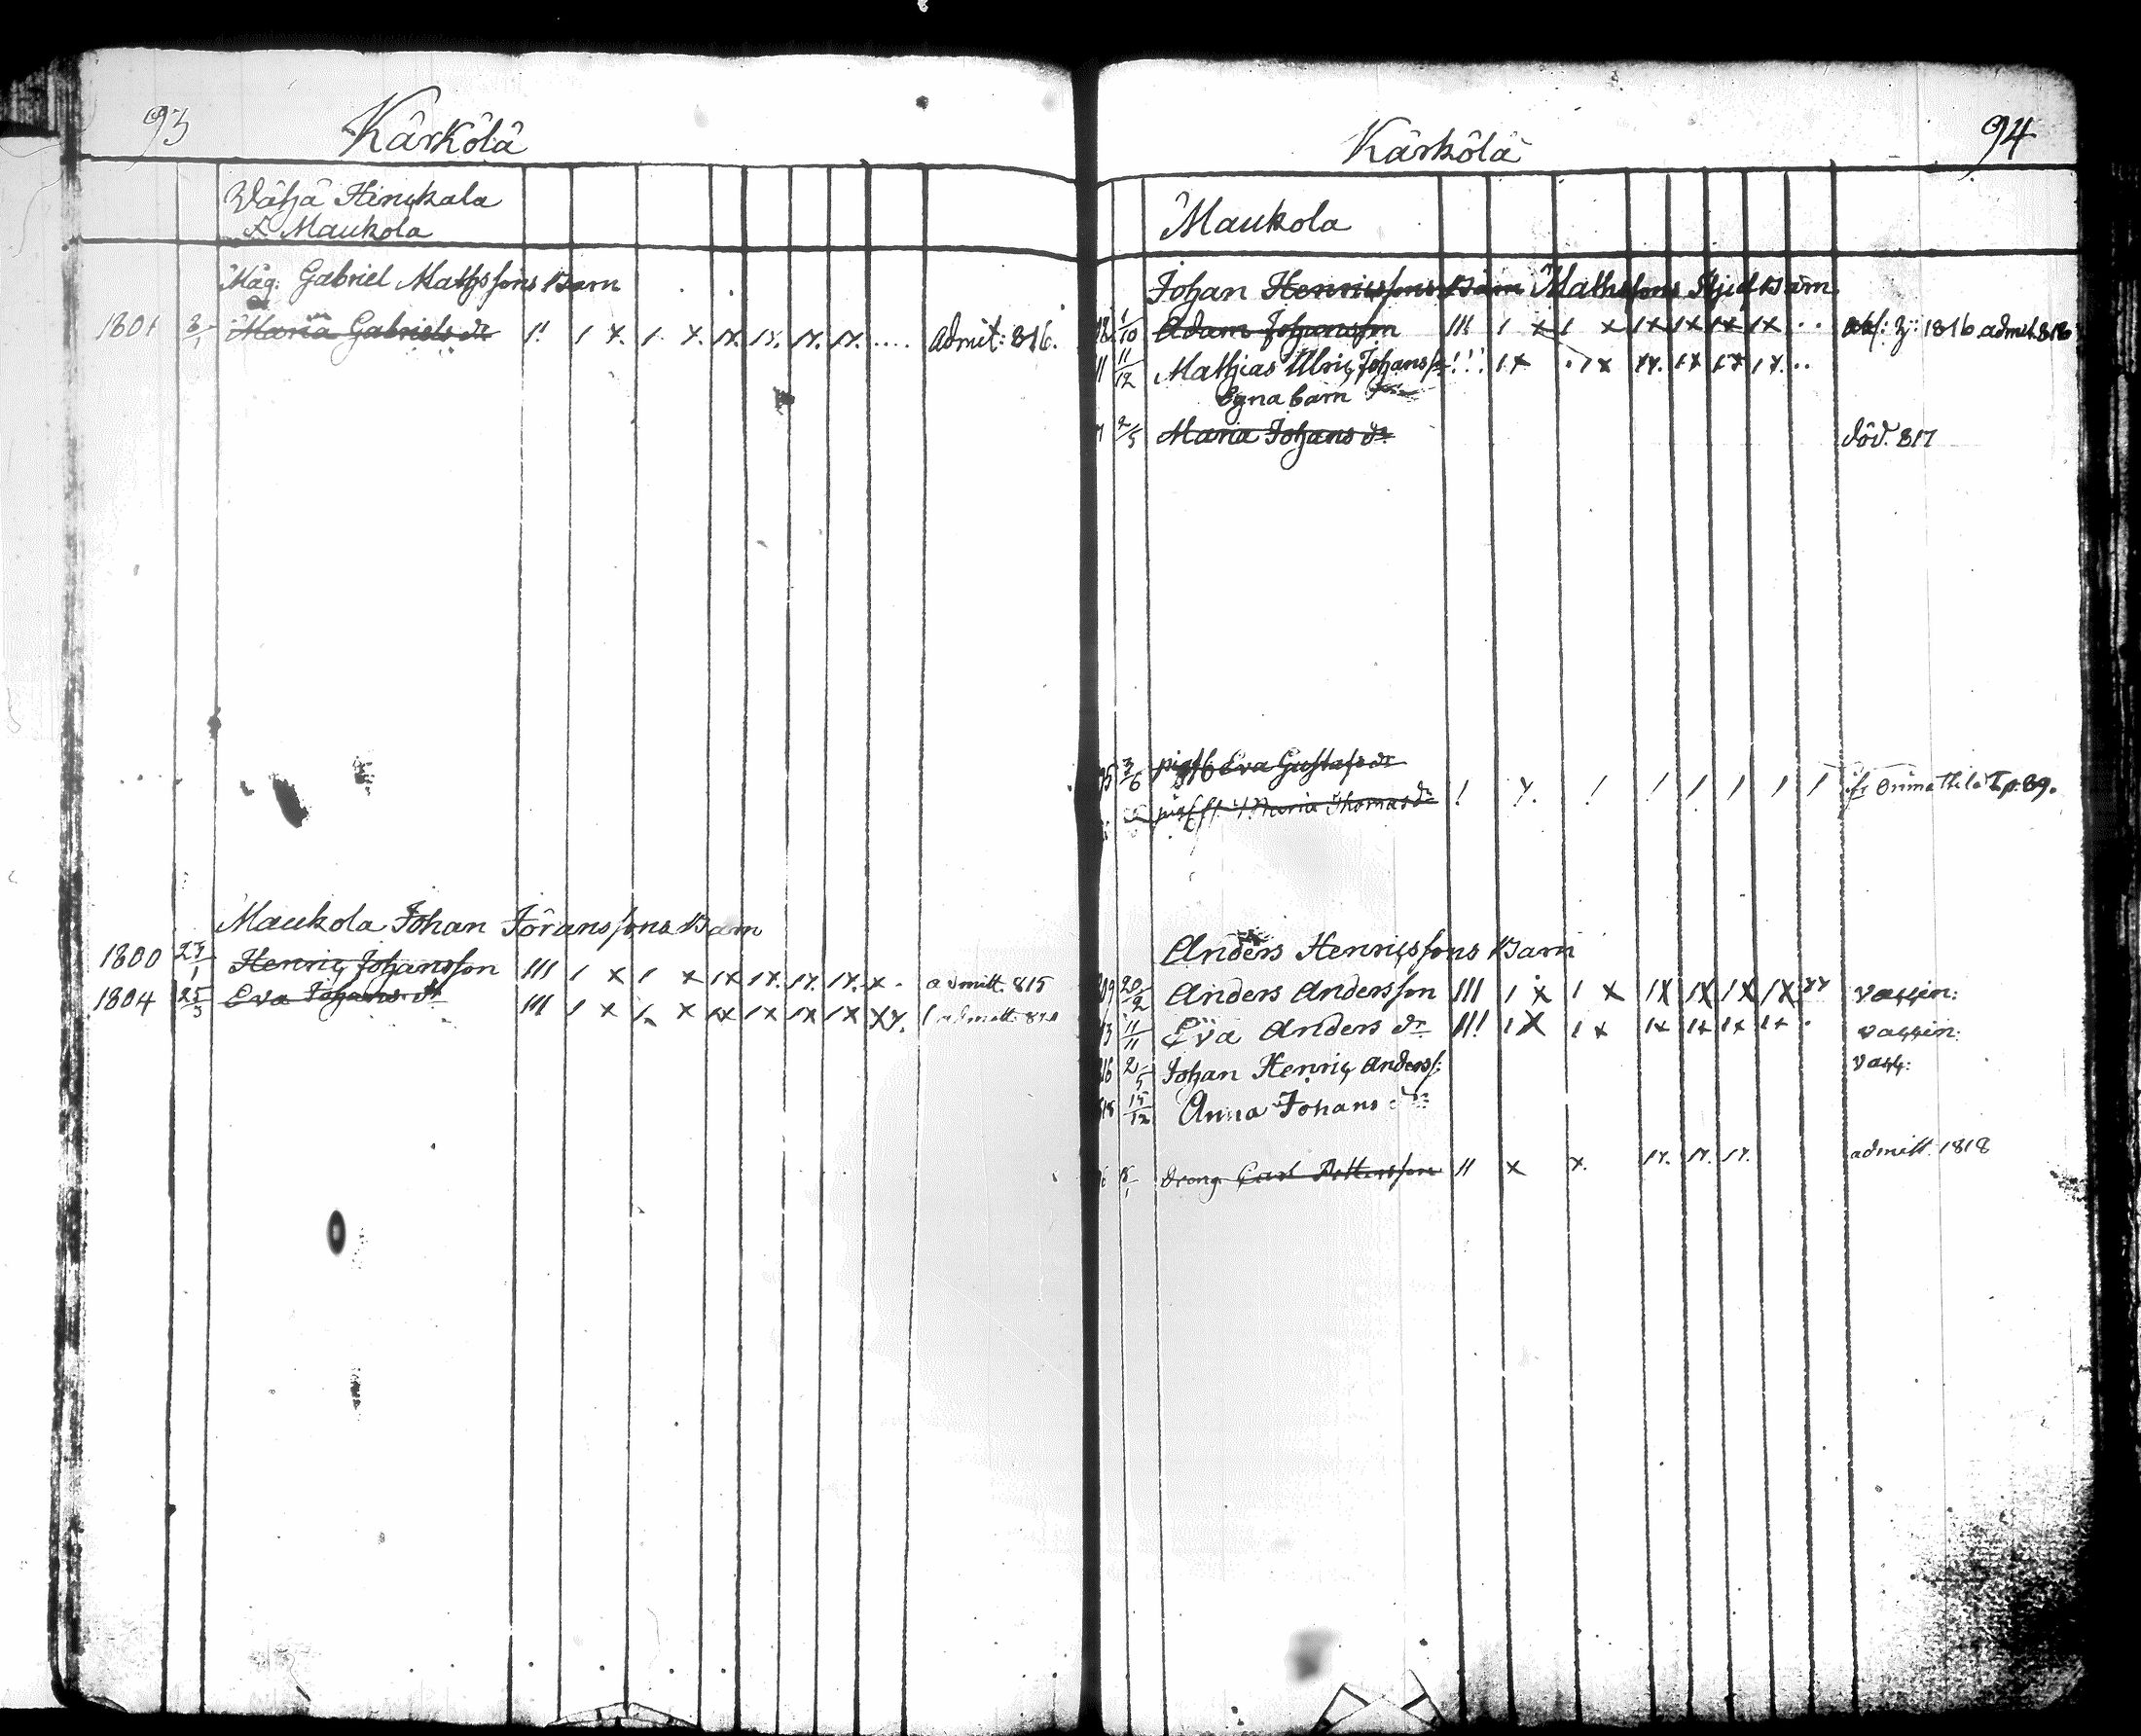 93
Kärkölä
Wähä Hinckala
& Maukola
Måg. Gabriel Mathssons Barn
1801 Maria Gabriels dr !! 1 x. 1. x. 1x. 1x. 1x. 1x. .... admit: 816.
Maukola Johan Göranssons Barn
1800 27/1 Henric Johansson 111 1 x 1 x 1x 1x. 1x. 1x. x. admitt. 815
1804 25/3 Eva Johans dr 111 1 x 1 x 1x 1x 1x 1x xx. admitt.
94
Kärkölä
Maukola
Johan Henricssons Barn Mathssons Stjuf Barn
1/10 Adam Johansson 111 1 x 1 x 1x 1x 1x 1x .. 1816 admit. 818
11 11/12 Mathias Ulric Johanss. !!! 1x 1x 1x. 1x 1x 1x. ..
Egna barn
2/5 Maria Johans dr död. 817
95 3/6 Eva Gustafs dr
Maria Thomas dr ! x. ! ! ! ! ! ! Orimattila p. 89.
Anders Henricssons Barn
09 20/2 Anders Andersson 111 1 x 1 x 1x 1x 1x 1x xx vaccin:
13 11/11 Eva Anders dr 111 1x 1x 1x 1x 1x 1x . vaccin:
16 2/5 Johan Henric Anderss: vacc:
18 15/12 Anna Johans dr
Dreng Carl Pettersson 11 x x. 1x. 1x. 1x. admitt. 1818